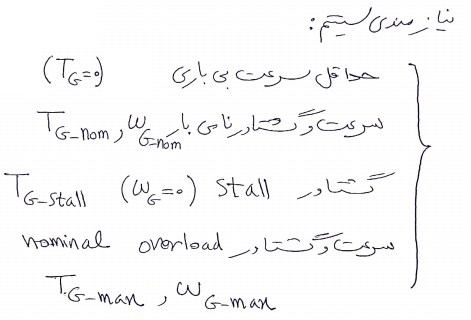 نیازمندی سیستم:
حداقل سرعت بی باری (T_G=0)
سرعت و گشتاور نامی بار T_G-nom , ω_G-nom
گشتاور Stall (ω_G=0) T_G-Stall
سرعت و گشتاور nominal overload
T_G-max , ω_G-max